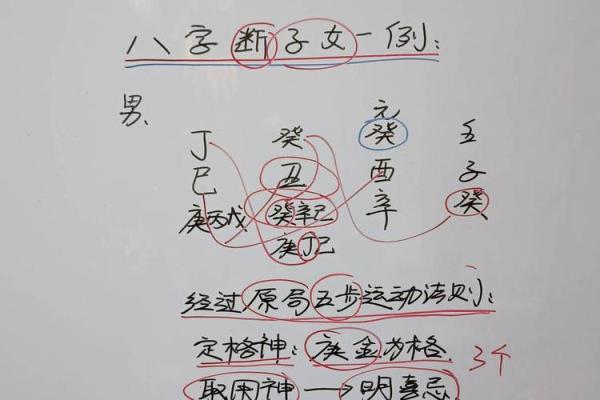 八字断子女一例:
男、
元
丁 癸 癸 壬
巳 丑 酉 子
庚丙戊 癸辛己 辛 癸
庚丁己
经过原局五步运动法则:
定格神: 庚金为格. 3个
取用神→明喜忌